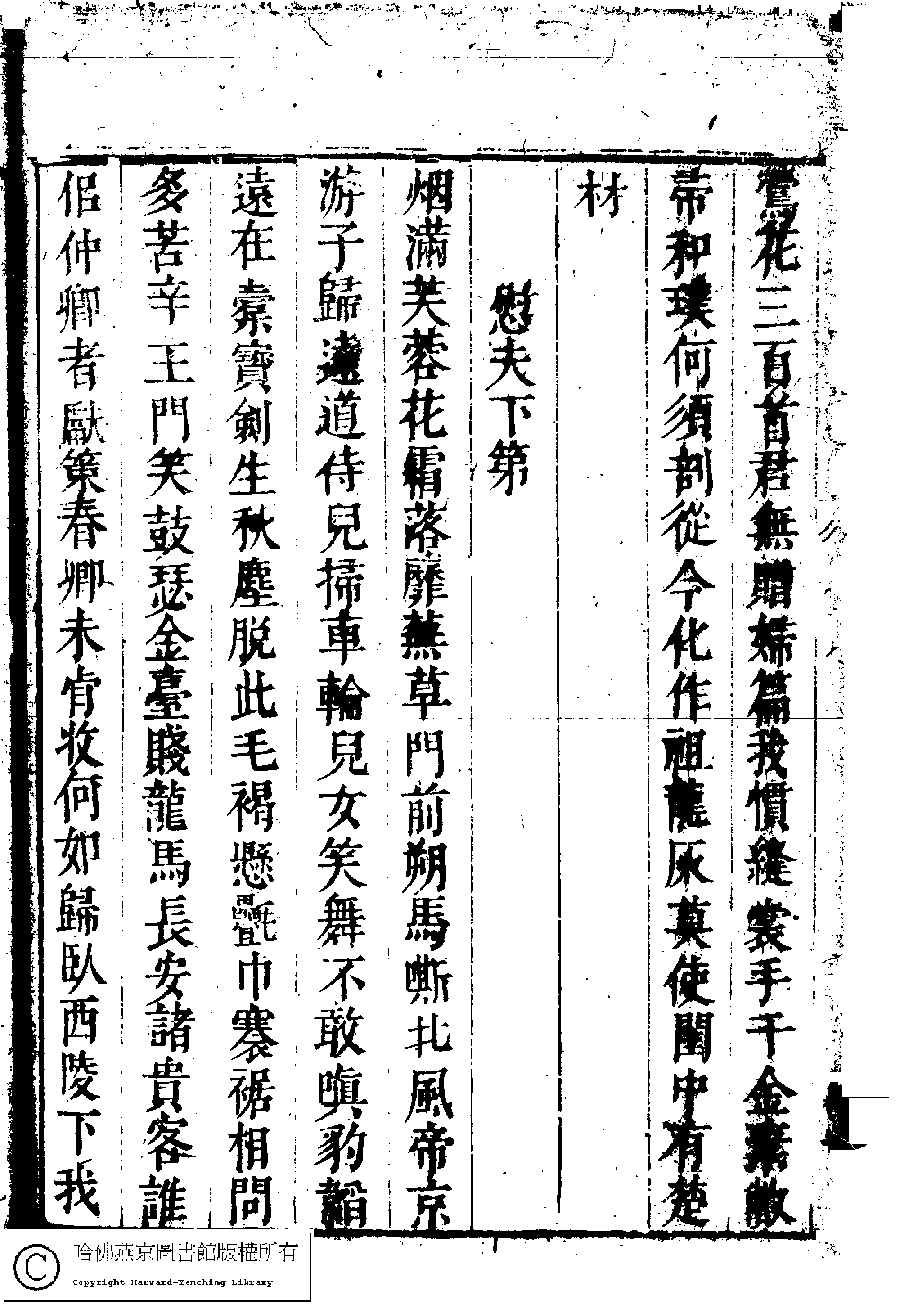 鶯花三百首君無贈婦篇我慣縫裳手千金棄敝
帚和璞何須剖從今化作祖龍灰莫使閨中有楚
材
慰夫下第
烟滿芙蓉花霜落蘼蕪草門前朔馬嘶北風帝京
游子歸遠道侍兒掃車輪兒女笑舞不敢嗔豹韜
遠在橐寶劍生秋塵脫此毛褐懸氍毹巾褰裾相問
多苦辛王門笑鼓瑟金臺賤龍馬長安諸貴客誰
侶仲卿者獻策春卿未肯收何如歸臥西陵下我
哈佛燕京圖書館版權所有
Copyright Harvard-Yenching Library